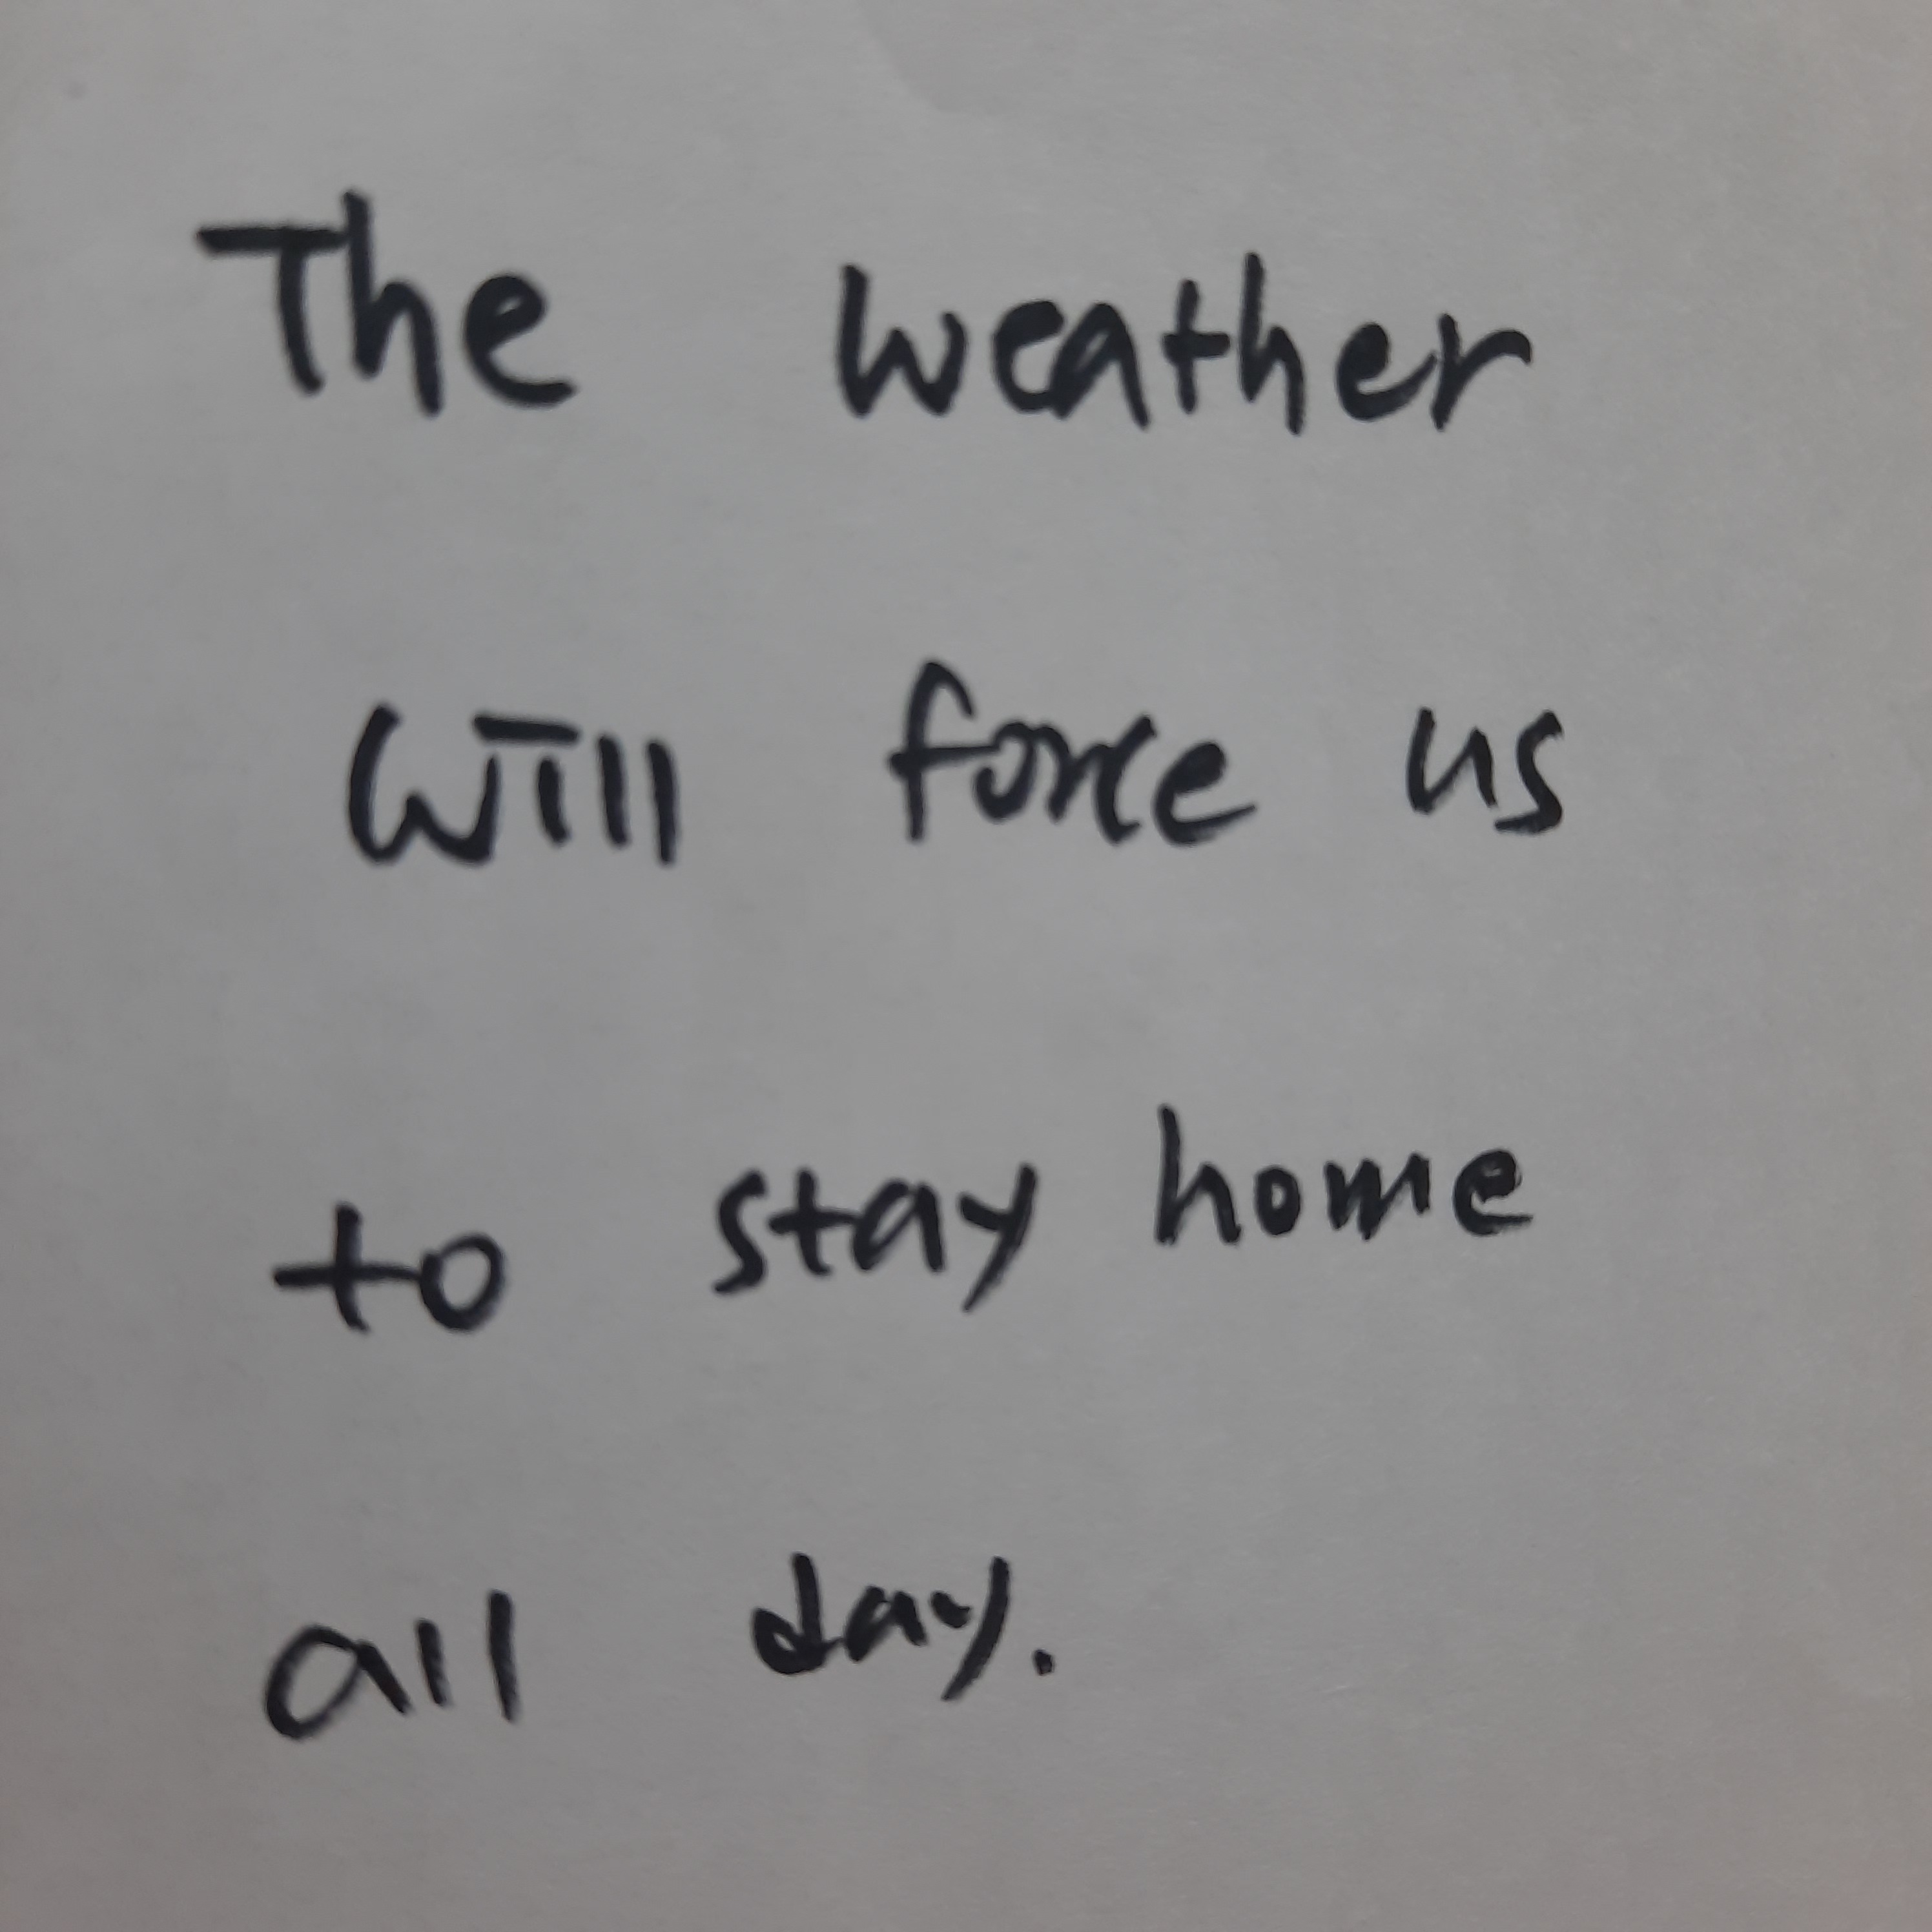 The weather
will force us
to stay home
all day.